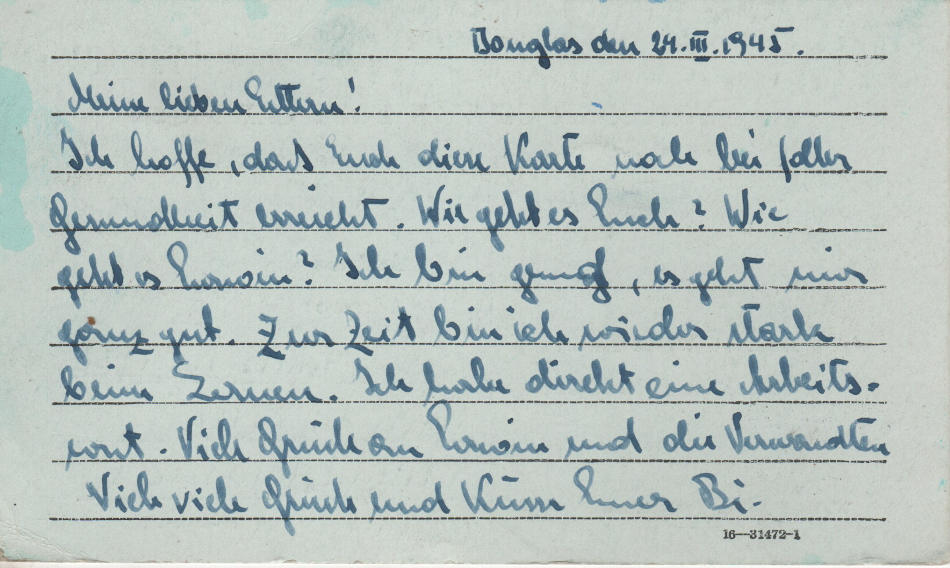 Douglas den 24.III.1945.
Meine lieben Eltern!
Ich hoffe, daß Euch diese Karte noch bei voller
Gesundheit erreicht. Wie geht es Euch? Wie
geht es Erwin? Ich bin gesund, es geht mir
ganz gut. Zur Zeit bin ich wieder stark
beim Lernen. Ich habe direkt eine Arbeits-
wut. Viele Grüße an Erwin und die Verwandten
Viele viele Grüße und Küsse Euer Bi.
16—31472-1